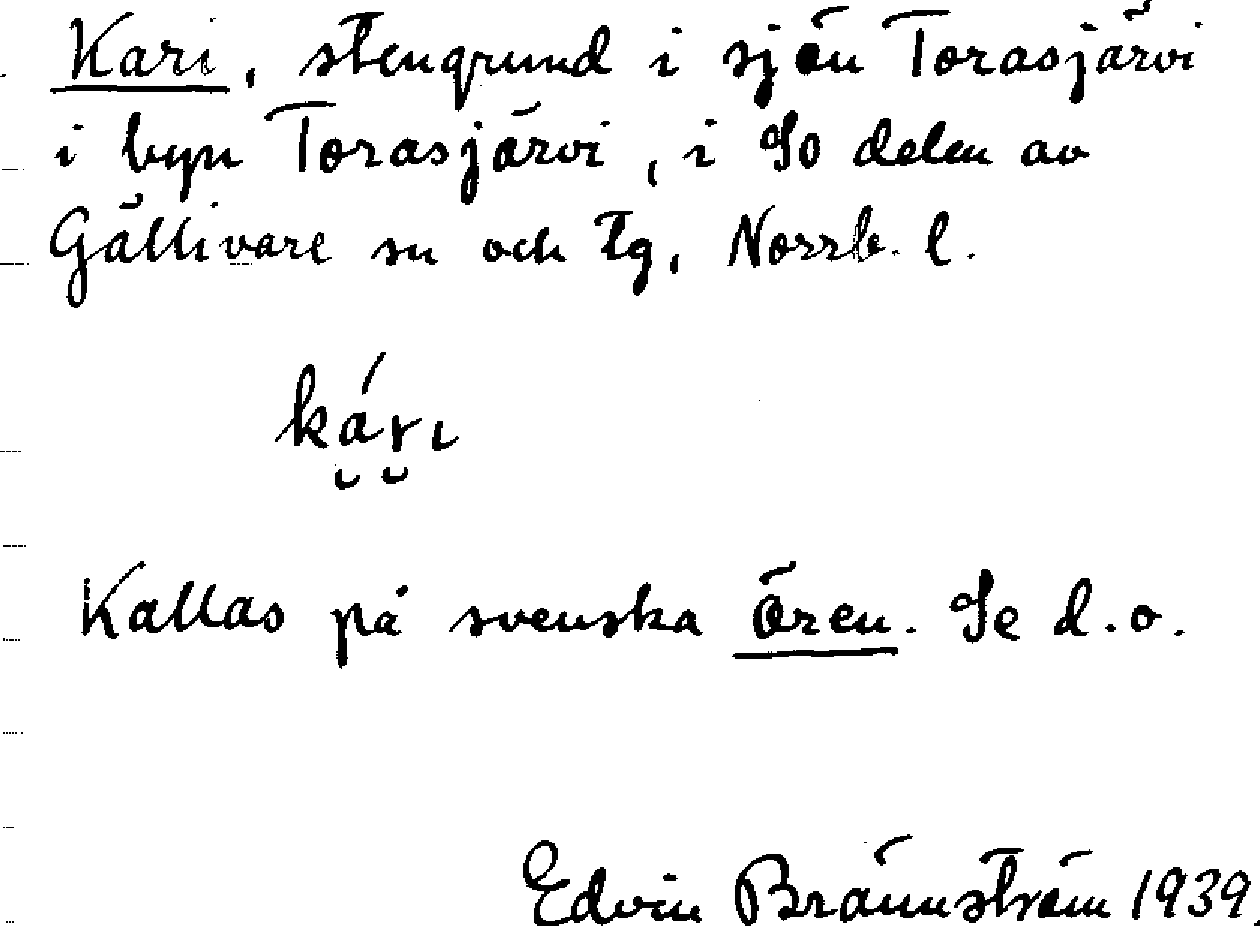 Kari, stengrund i sjön Torasjärvi
i byn Torasjärvi, i So delen av
Gällivare sn och tg, Norrb. l.
kári
Kallas på svenska Ören. Se d.o.
Edvin Brännström 1939.